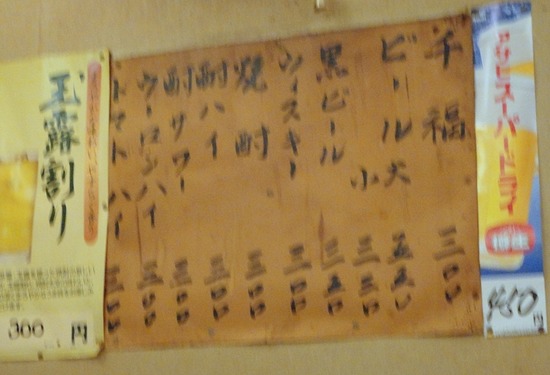 アサヒスーパードライ
樽生
450円
千福 三〇〇
ビール大 五五〇
小 三三〇
黒ビール 三五〇
ウィスキー 三〇〇
焼酎 三〇〇
酎ハイ 三〇〇
酎サワー 三〇〇
ウーロンハイ 三〇〇
トマトハイ 三〇〇
玉露割り
300円